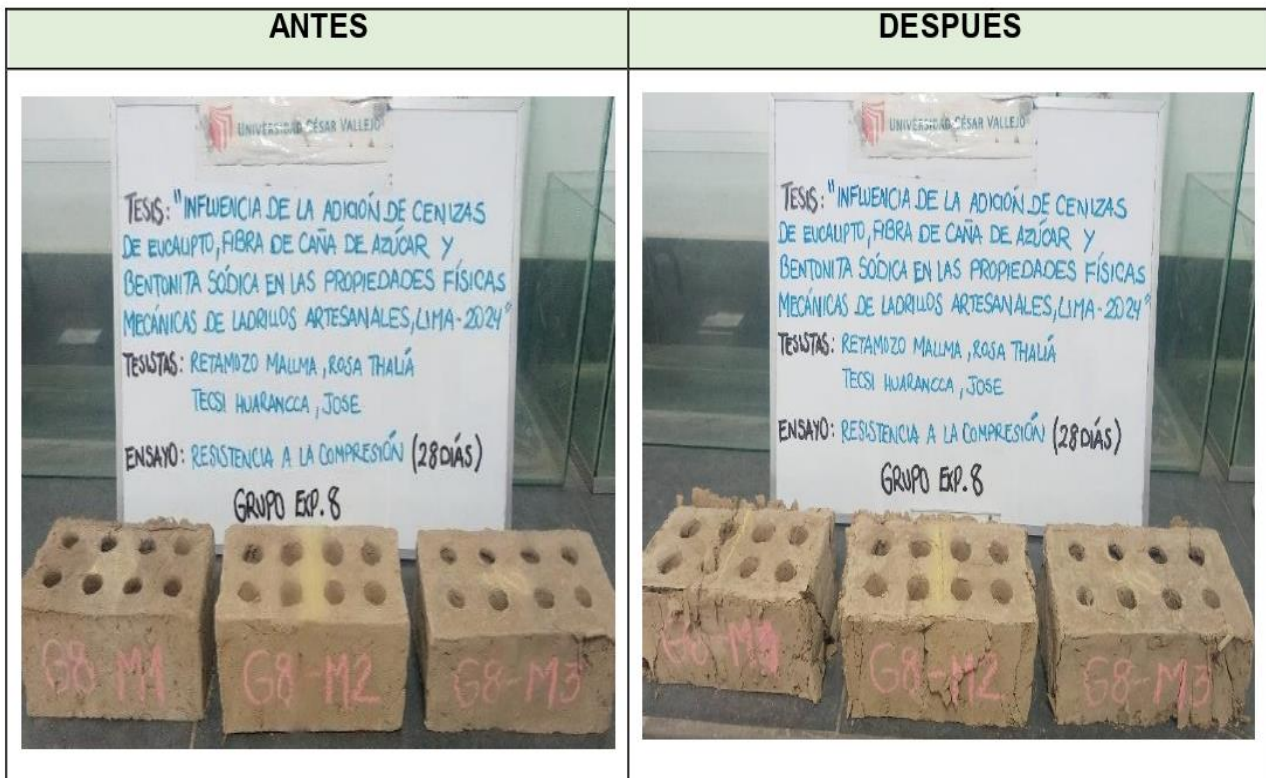 ANTES
DESPUÉS
UNIVERSIDAD CÉSAR VALLEJO
TESIS: "INFLUENCIA DE LA ADICIÓN DE CENIZAS
DE EUCALIPTO, FIBRA DE CAÑA DE AZÚCAR Y
BENTONITA SÓDICA EN LAS PROPIEDADES FÍSICAS
MECÁNICAS DE LADRILLOS ARTESANALES, LIMA-2024"
TESISTAS: RETAMOZO MALLMA, ROSA THALIÁ
TECSI HUARANCCA, JOSE
ENSAYO: RESISTENCIA A LA COMPRESIÓN (28 DÍAS)
GRUPO EXP. 8
G8-M1
G8-M2
G8-M3
UNIVERSIDAD CÉSAR VALLEJO
TESIS: "INFLUENCIA DE LA ADICIÓN DE CENIZAS
DE EUCALIPTO, FIBRA DE CAÑA DE AZÚCAR Y
BENTONITA SÓDICA EN LAS PROPIEDADES FÍSICAS
MECÁNICAS DE LADRILLOS ARTESANALES, LIMA-2024"
TESISTAS: RETAMOZO MALLMA, ROSA THALIÁ
TECSI HUARANCCA, JOSE
ENSAYO: RESISTENCIA A LA COMPRESIÓN (28 DÍAS)
GRUPO EXP. 8
G8-M1
G8-M2
G8-M3